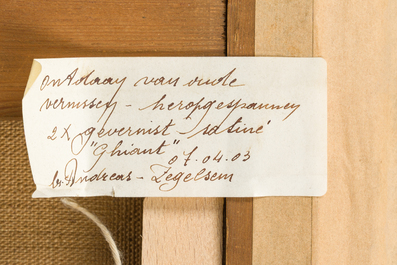 ontdaan van oude
vernissen - heropgespannen
2 x gevernist - satiné
"Ghiant"
07.04.03
br. Andreas - Zegelsem